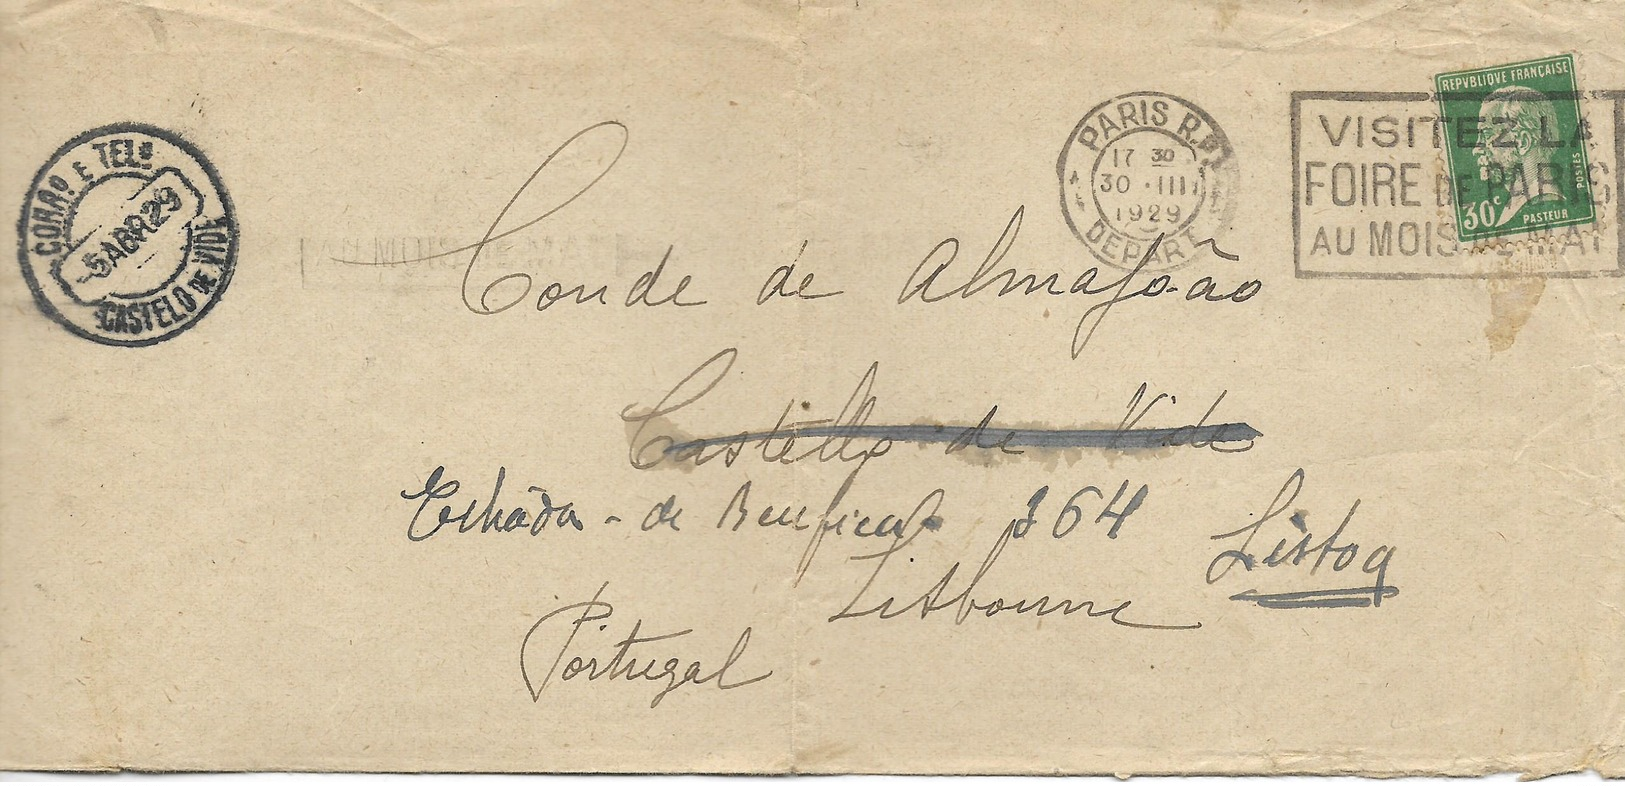 REPVBLIQVE FRANÇAISE
30c
POSTES
PASTEUR
PARIS R.P.
17 30
30 · III
1929
DEPART
VISITEZ LA
FOIRE DE PARIS
AU MOIS DE MAI
CORRº E TELº
5 ABR 29
CASTELO DE VIDE
Conde de
Castello de Vide
de Benfica 364
Lisboa
Lisbonne
Portugal